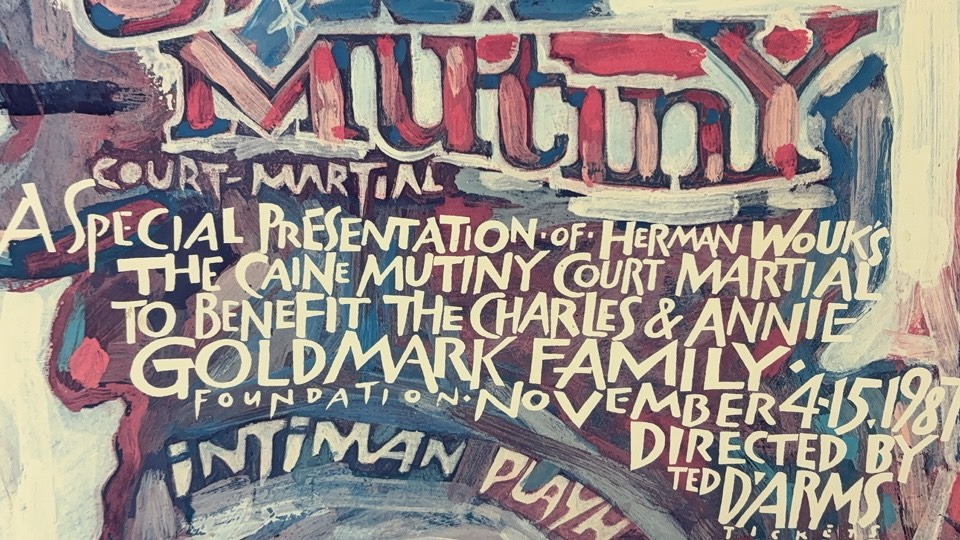 MUtinY
COURT-MARTIAL
A SPECIAL PRESENTATION·OF·HERMAN WOUK'S
THE CAINE MUTINY COURT MARTIAL
TO BENEFIT THE CHARLES & ANNIE
GOLDMARK FAMILY·
FOUNDATION·NOVEMBER 4-15.1987
DIRECTED BY
TED D'ARMS
iNTiMAN PLAYH
TICKETS